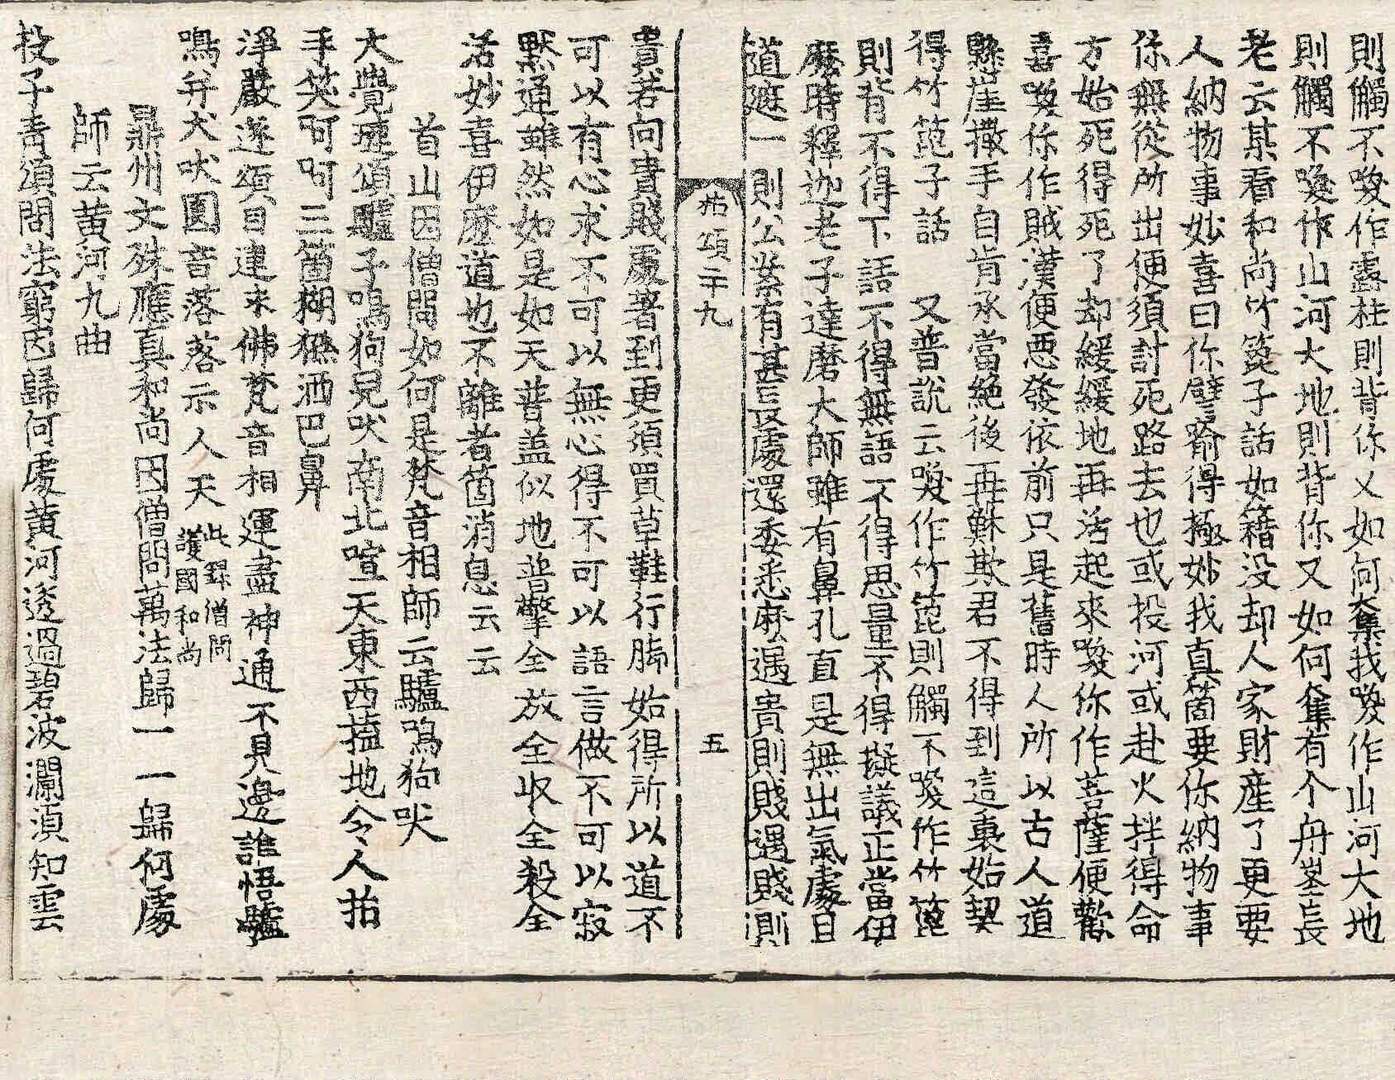 則觸不喚作露柱則背你又如何奪我喚作山河大地
則觸不喚作山河大地則背你又如何奪有个舟峯長
老云某看和尚竹篦子話如籍沒却人家財産了更要
人納物事妙喜曰你譬喻得極妙我真箇要你納物事
你無從所出便須討死路去也或投河或赴火拌得命
方始死得死了却緩緩地再活起來喚你作菩薩便歡
喜喚你作賊漢便悪發依前只是舊時人所以古人道
懸崖撒手自肯承當絶後再穌欺君不得到這裏始契
得竹篦子話　又普說云喚作竹篦則觸不喚作竹篦
則背不得下語不得無語不得思量不得擬議正當伊
麽時釋迦老子達磨大師雖有鼻孔直是無出氣處且
道遮一則公案有甚長處還委悉麽遇貴則賤遇賤則
拈頌二十九　五
貴若向貴賤處著到更須買草鞋行脚始得所以道不
可以有心求不可以無心得不可以語言做不可以寂
黙通雖然如是如天普盖似地普擎全放全収全殺全
活妙喜伊麽道也不離者箇消息云云
首山因僧問如何是梵音相師云驢鳴狗吠
大覺璉頌驢子鳴狗兒吠南北喧天東西搕地令人拍
手笑呵呵三箇猢猻洒巴鼻
淨嚴遂頌目連求佛梵音相運盡神通不見邊誰悟驢
鳴并犬吠圓音落落示人天此錄僧問護國和尚
鼎州文殊應真和尚因僧問萬法歸一一歸何處
師云黄河九曲
投子靑頌問法窮因歸何處黄河透過碧波瀾須知雲